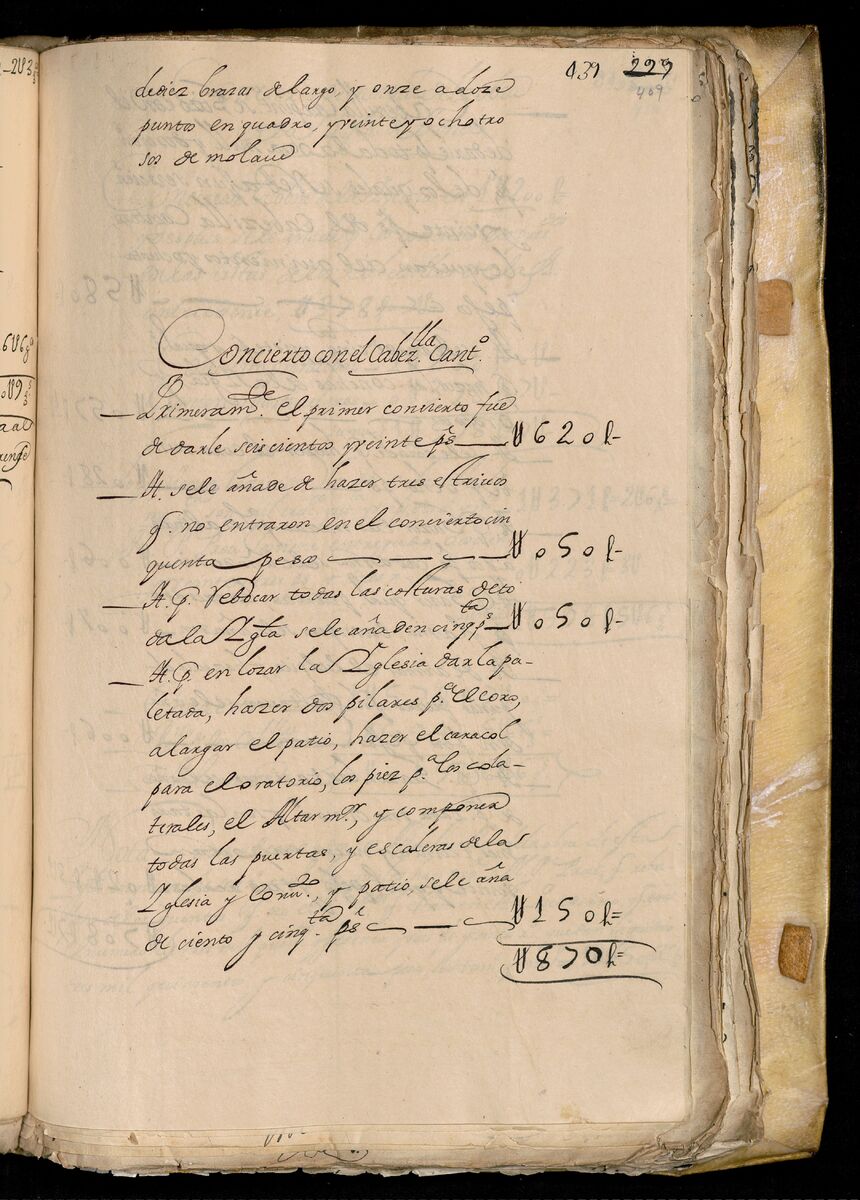 431 229
409
de diez brazas de largo, y onze a doze
puntos en quadro, y veinte y ocho tro
sos de molave
Concierto con el Cabez.lla Cant.o
Primeram.te el primer concierto fue
de darle seiscientos y veinte ps U620p
It. se le añade de hazer tres estrivos
q. no entraron en el concierto cin
quenta pesos U050p
It. p. rebocar todas las costuras de to
da la Ygla se le añaden cinq.ta ps U050p
It. p. enlozar la Yglesia dar la pa-
letada, hazer dos pilares p.a el coro,
alargar el patio, hazer el caracol
para el oratorio, los piez p.a los cola-
terales, el Altar m.r, y componer
todas las puertas, y escaleras de la
Yglesia y Conv.to, y patio, se le aña
de ciento y cinq.ta ps U150p
U870p